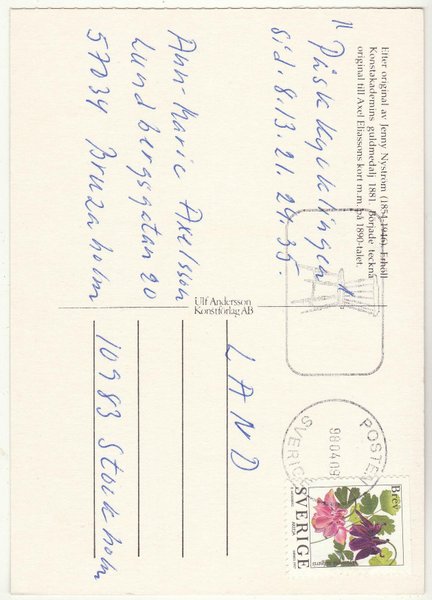 Efter original av Jenny Nyström (1854-1946). Erhöll
Konstakademins guldmedalj 1881. Började teckna
original till Axel Eliassons kort m.m. på 1890-talet.
"Påskkycklingen"
sid. 8. 13. 21. 24. 35.
Ann-Marie Axelsson
Lundbergsgatan 20
57034 Bruzaholm
Ulf Andersson
Konstförlag AB
LAND
10983 Stockholm
POSTEN
980409
SVERIGE
Brev
SVERIGE